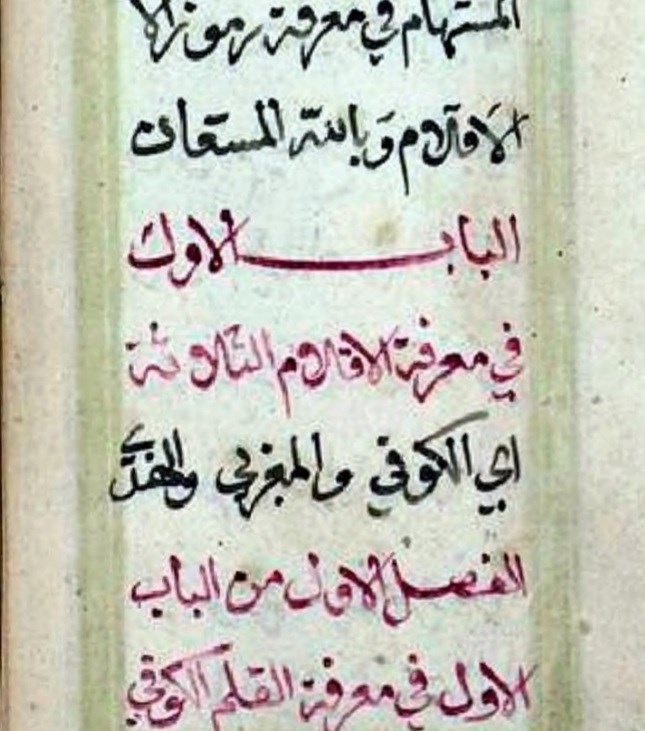 المستهام في معرفة رموز الا
الاقلام وبالله المستعان
الباب الاول
في معرفة الاقلام الثلاثة
اي الكوفي والمغربي والهندي
الفصل الاول من الباب
الاول في معرفة القلم الكوفي